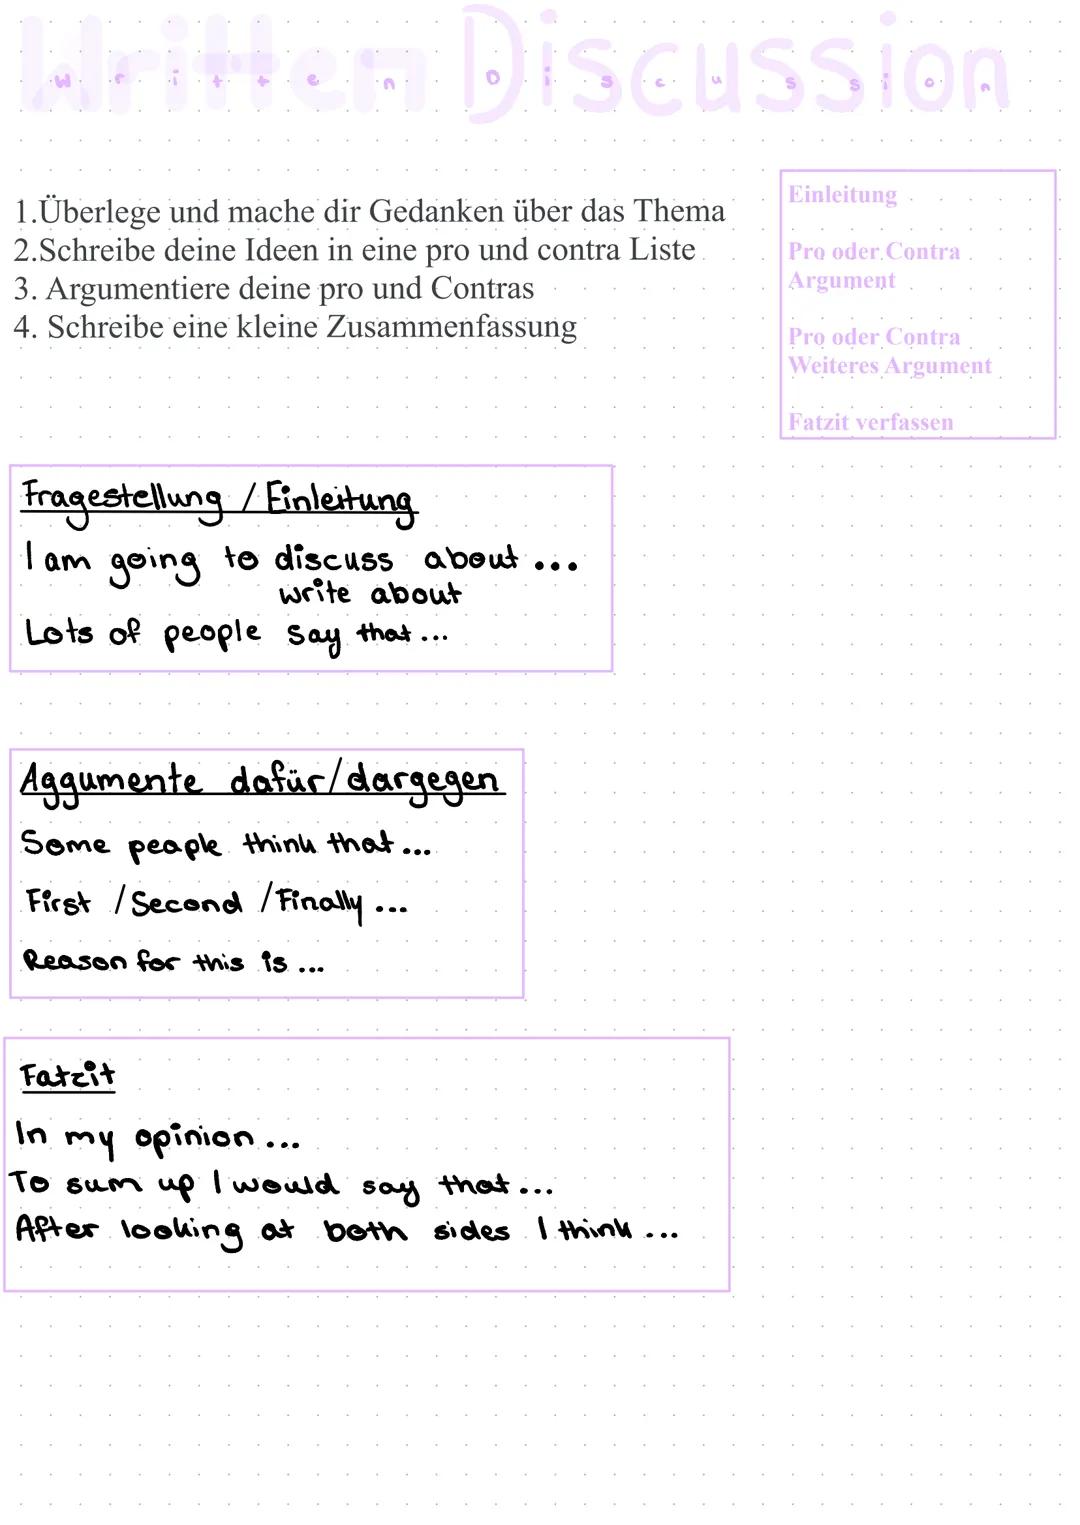 Written Discussion
W r i t t e n D i s c u s s i o n
1.Überlege und mache dir Gedanken über das Thema
2.Schreibe deine Ideen in eine pro und contra Liste
3. Argumentiere deine pro und Contras
4. Schreibe eine kleine Zusammenfassung
Einleitung
Pro oder Contra
Argument
Pro oder Contra
Weiteres Argument
Fatzit verfassen
Fragestellung / Einleitung
I am going to discuss about ...
write about
Lots of people say that ...
Aggumente dafür/dargegen
Some peaple think that ...
First / Second / Finally ...
Reason for this is ...
Fatzit
In my opinion ...
To sum up I would say that ...
After looking at both sides I think ...